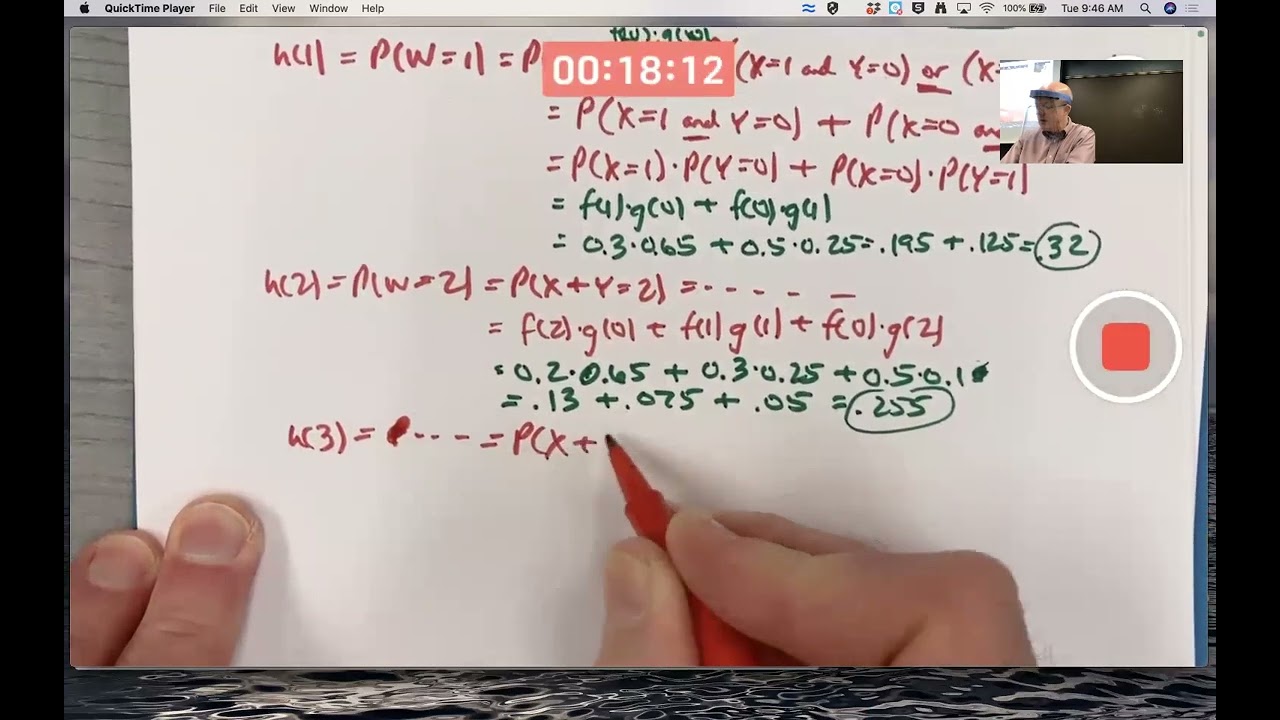 QuickTime Player File Edit View Window Help 100% Tue 9:46 AM
f(0)·g(0)
h(1) = P(W=1) = P (X=1 and Y=0) or (X=
00:18:12
= P(X=1 and Y=0) + P(X=0 an
= P(X=1)·P(Y=0) + P(X=0)·P(Y=1)
= f(1)·g(0) + f(0)·g(1)
= 0.3·0.65 + 0.5·0.25 = .195 + .125 = .32
h(2) = P(W=2) = P(X+Y=2) = - - - - —
= f(2)·g(0) + f(1) g(1) + f(0)·g(2)
= 0.2·0.65 + 0.3·0.25 + 0.5·0.1
= .13 + .075 + .05 = .255
h(3) = - - - = P(X+